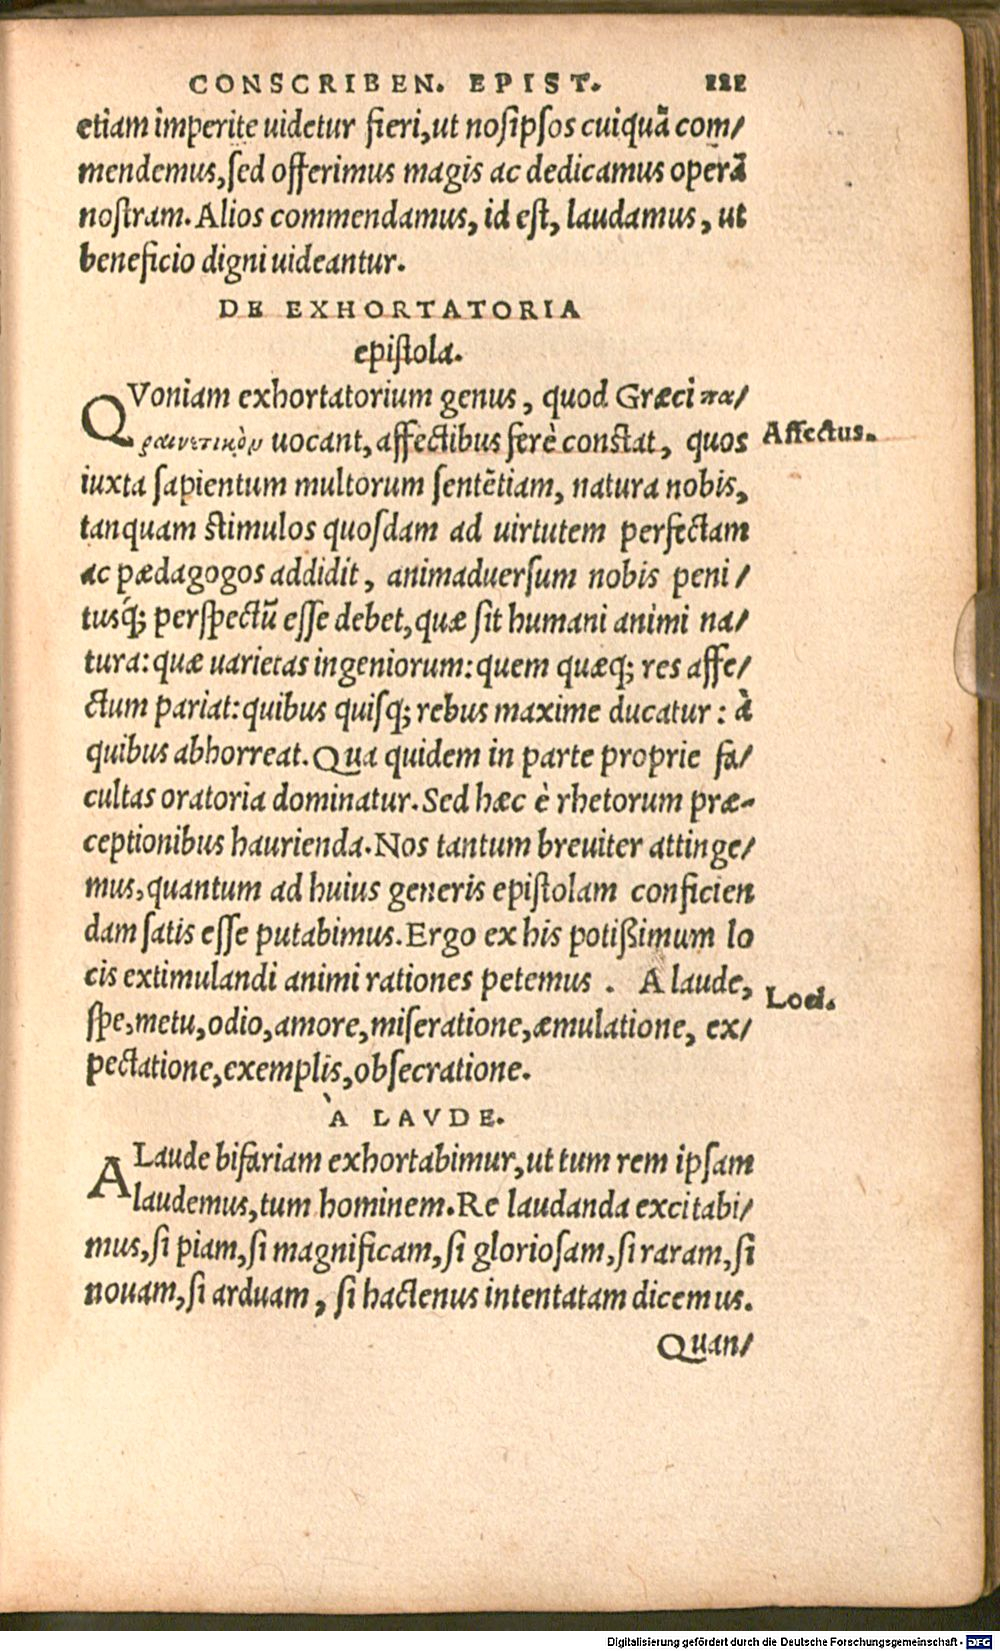 CONSCRIBEN. EPIST. 121
etiam imperite uidetur fieri, ut nosipsos cuiquā com/
mendemus, sed offerimus magis ac dedicamus operā
nostram. Alios commendamus, id est, laudamus, ut
beneficio digni uideantur.
DE EXHORTATORIA
epistola.
QVoniam exhortatorium genus, quod Græci πα/
ραινετικὸν uocant, affectibus ferè constat, quos
Affectus.
iuxta sapientum multorum sentētiam, natura nobis,
tanquam stimulos quosdam ad uirtutem perfectam
ac pædagogos addidit, animaduersum nobis peni/
tusq́; perspectū esse debet, quæ sit humani animi na/
tura: quæ uarietas ingeniorum: quem quæq; res affe/
ctum pariat: quibus quisq; rebus maxime ducatur: à
quibus abhorreat. Qua quidem in parte proprie fa/
cultas oratoria dominatur. Sed hæc è rhetorum præ-
ceptionibus haurienda. Nos tantum breuiter attinge/
mus, quantum ad huius generis epistolam conficien
dam satis esse putabimus. Ergo ex his potißimum lo
cis extimulandi animi rationes petemus. A laude,
Loci.
spe, metu, odio, amore, miseratione, æmulatione, ex/
pectatione, exemplis, obsecratione.
À LAVDE.
A Laude bifariam exhortabimur, ut tum rem ipsam
laudemus, tum hominem. Re laudanda excitabi/
mus, si piam, si magnificam, si gloriosam, si raram, si
nouam, si arduam, si hactenus intentatam dicemus.
Quan/
Digitalisierung gefördert durch die Deutsche Forschungsgemeinschaft - DFG